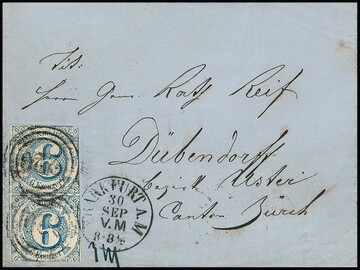 Tit:
Herrn Gem. Rath Reif
Dübendorff
Bezirk Uster
Canton Zürich
FRANKFURT A.M.
30
SEP
V.M
8-8½
6
6